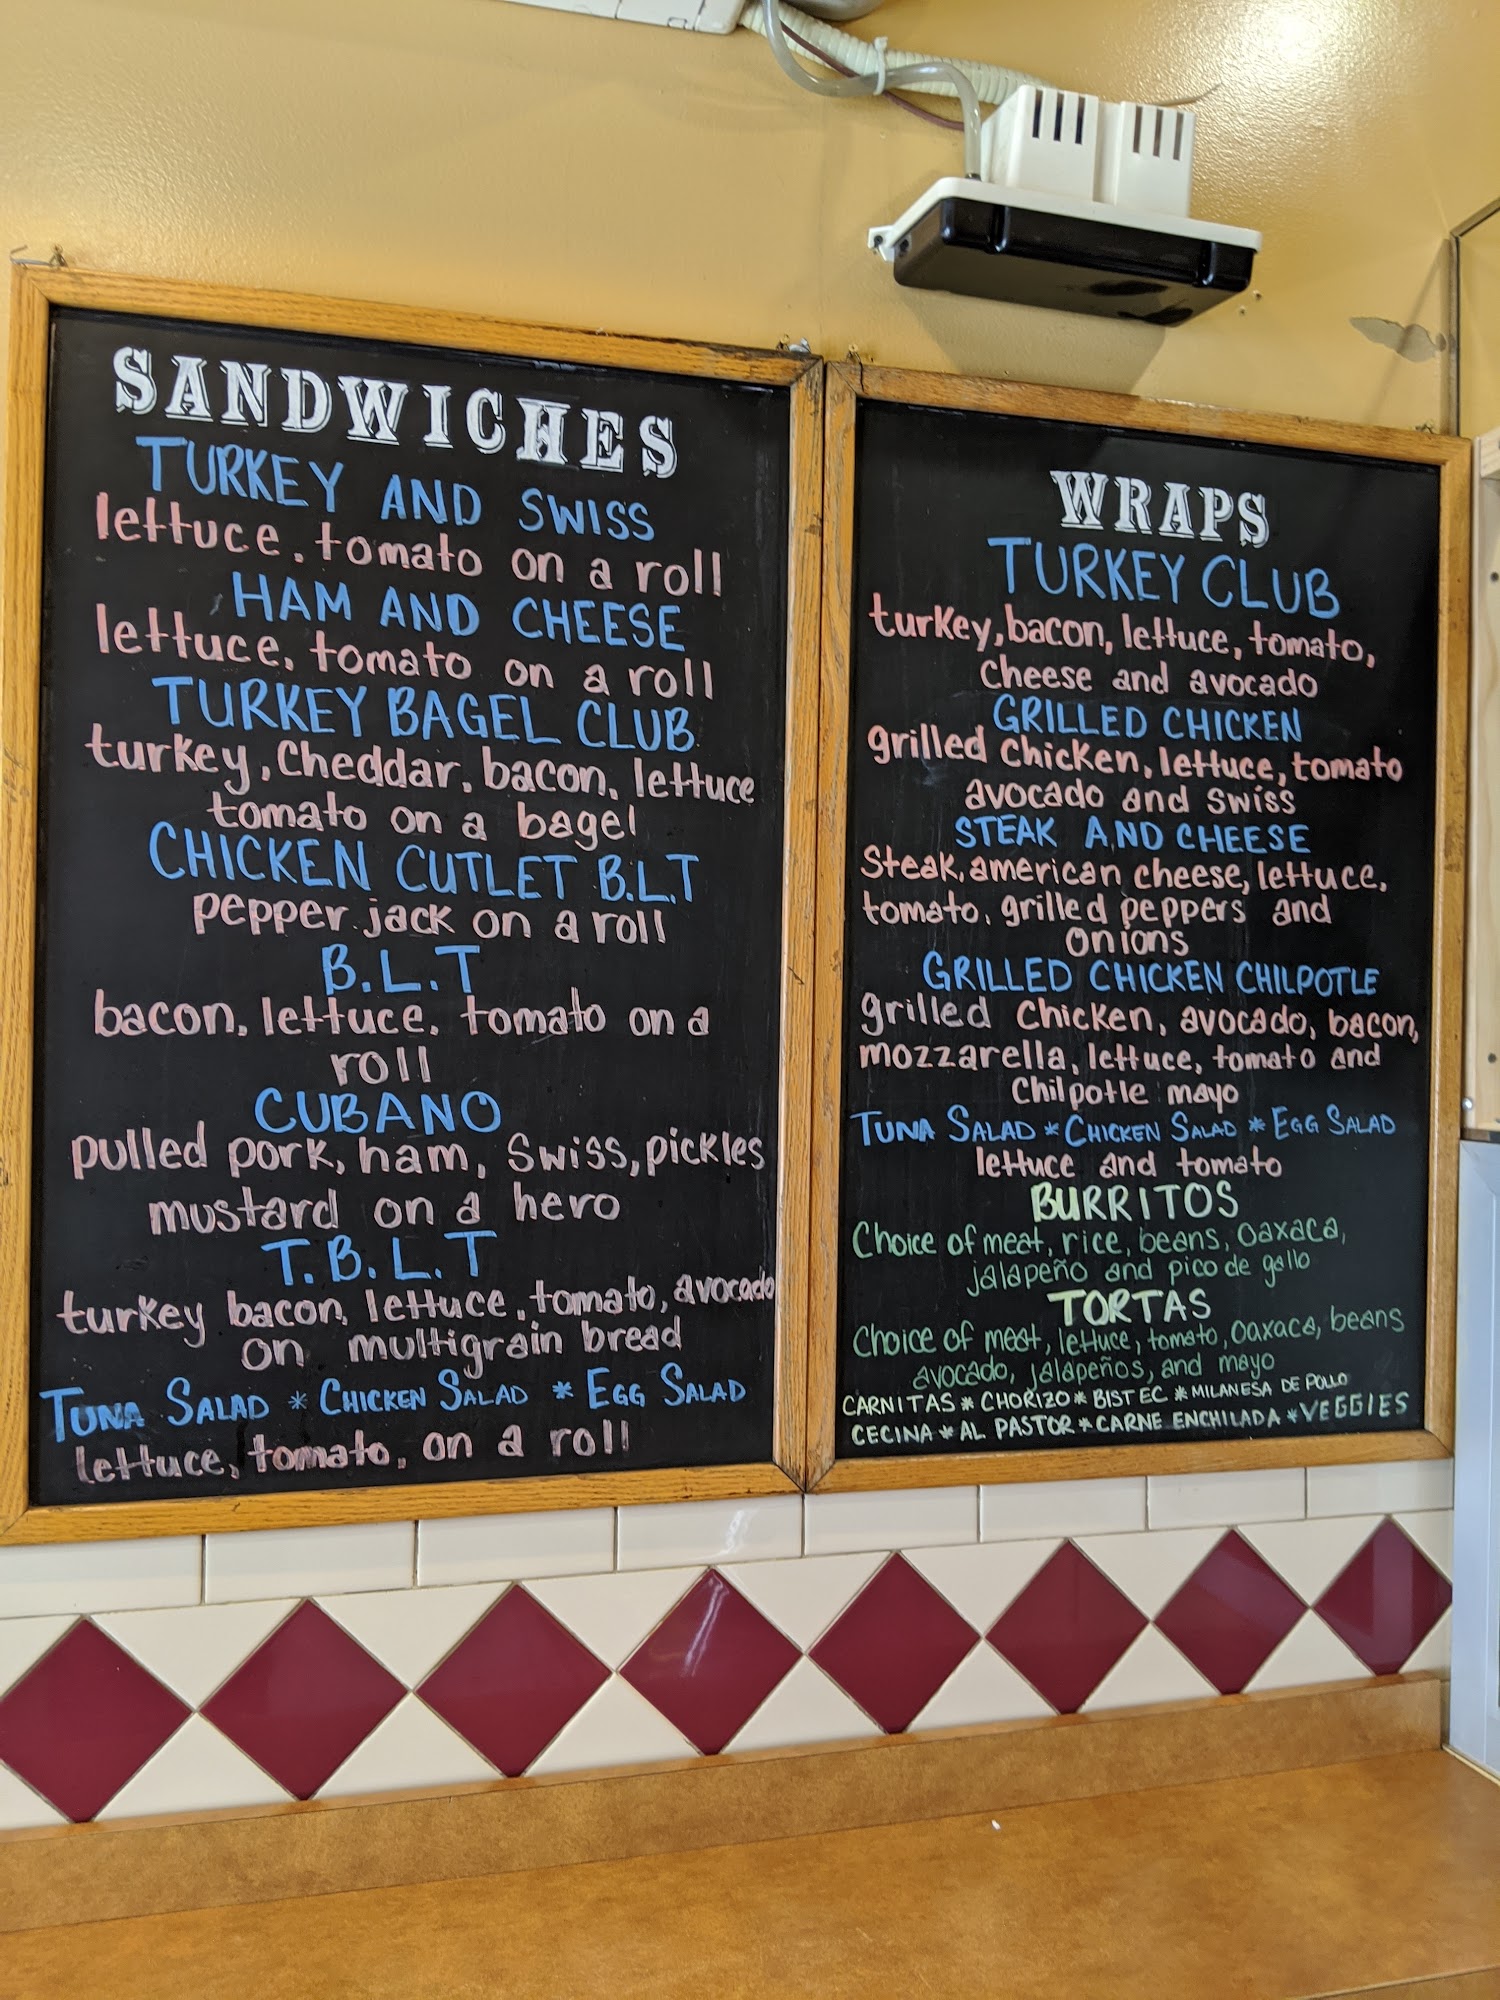 SANDWICHES
TURKEY AND SWISS
lettuce, tomato on a roll
HAM AND CHEESE
lettuce, tomato on a roll
TURKEY BAGEL CLUB
turkey, Cheddar, bacon, lettuce
tomato on a bagel
CHICKEN CUTLET B.L.T
pepper jack on a roll
B.L.T
bacon, lettuce, tomato on a
roll
CUBANO
pulled pork, ham, Swiss, pickles
mustard on a hero
T.B.L.T
turkey bacon, lettuce, tomato, avocado
on multigrain bread
TUNA SALAD * CHICKEN SALAD * EGG SALAD
lettuce, tomato, on a roll
WRAPS
TURKEY CLUB
turkey, bacon, lettuce, tomato,
Cheese and avocado
GRILLED CHICKEN
grilled Chicken, lettuce, tomato
avocado and swiss
STEAK AND CHEESE
Steak, american cheese, lettuce,
tomato, grilled peppers and
onions
GRILLED CHICKEN CHILPOTLE
grilled Chicken, avocado, bacon,
mozzarella, lettuce, tomato and
Chilpotle mayo
TUNA SALAD * CHICKEN SALAD * EGG SALAD
lettuce and tomato
BURRITOS
Choice of meat, rice, beans, Oaxaca,
jalapeño and pico de gallo
TORTAS
Choice of meat, lettuce, tomato, Oaxaca, beans
avocado, jalapeños, and mayo
CARNITAS * CHORIZO * BISTEC * MILANESA DE POLLO
CECINA * AL PASTOR * CARNE ENCHILADA * VEGGIES